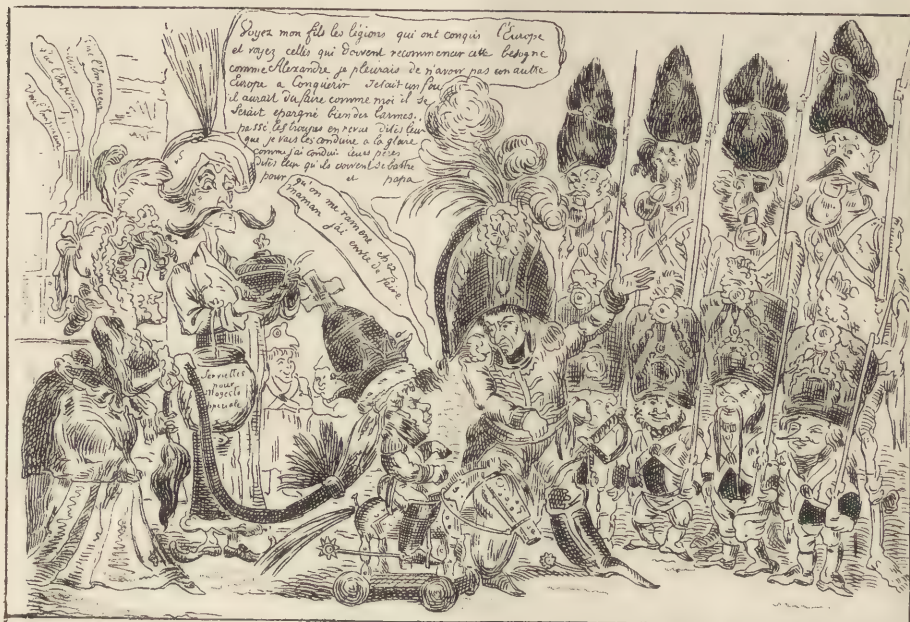 Vive l'Empereur
Vive l'Empereur
Vive l'Empereur
Voyez mon fils les légions qui ont conquis l'Europe
et voyez celles qui doivent recommencer cette besogne
comme Alexandre je pleurais de n'avoir pas un autre
Europe a Conquérir Jetait un fou
il aurait du faire comme moi il se
serait epargné bien des larmes.
passé les troupes en revue dites leur
que je vais les conduire a la gloire
comme j'ai conduit leurs pères
dites leur qu'ils doivent se battre
pour et papa
qu'on me ramene chez
maman j'ai envie de faire
Serviettes
pour
Majesté